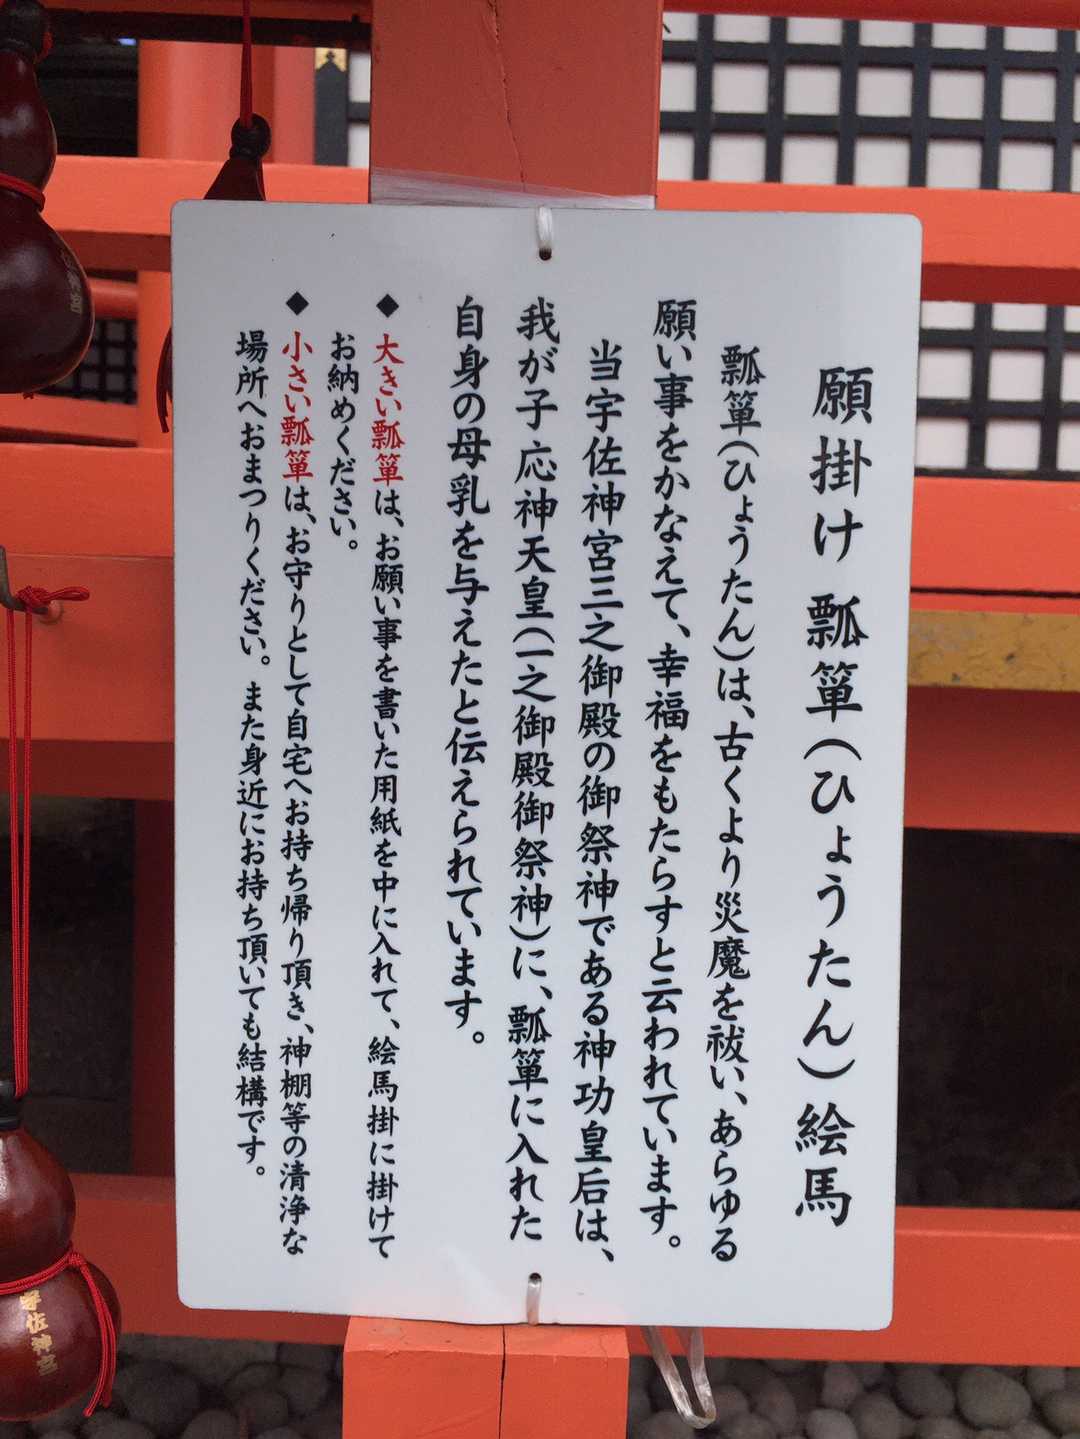 願掛け 瓢箪(ひょうたん)絵馬
瓢箪(ひょうたん)は、古くより災魔を祓い、あらゆる
願い事をかなえて、幸福をもたらすと云われています。
当宇佐神宮三之御殿の御祭神である神功皇后は、
我が子 応神天皇(一之御殿御祭神)に、瓢箪に入れた
自身の母乳を与えたと伝えられています。
◆大きい瓢箪は、お願い事を書いた用紙を中に入れて、絵馬掛に掛けて
お納めください。
◆小さい瓢箪は、お守りとして自宅へお持ち帰り頂き、神棚等の清浄な
場所へおまつりください。また身近にお持ち頂いても結構です。
宇佐神宮